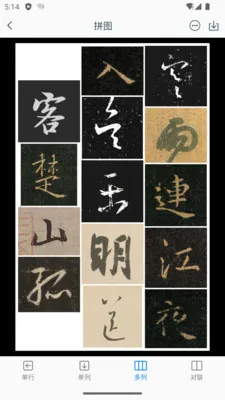 5:14
拼图
寒雨連江夜
入吳平明送
客楚山孤
单行 单列 多列 对联